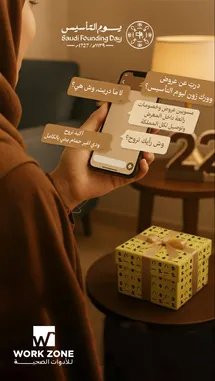 يوم التأسيس
Saudi Founding Day
١١٣٩هـ - 1727م
دريت عن عروض
وورك زون ليوم التأسيس؟
لا ما دريت، وش هي؟
مسويين عروض وخصومات
رائعة داخل المعرض
وتوصيل لكل المملكة
وش رأيك نروح؟
أكيد نروح
ودي اغير حمام بيتي بالكامل
22
W
WORK ZONE
للأدوات الصحية